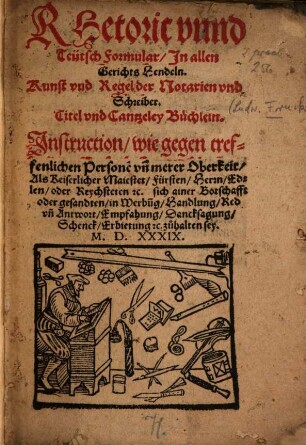 Rhetoric vnnd
Teütsch Formular/ In allen
Gerichts Hendeln.
Kunst vnd Regel der Notarien vnd
Schreiber.
Titel vnd Cantzeley Büchlein.
Instruction, wie gegen tref-
fenlichen Personē vñ merer Oberkeit/
Als Keiserlicher Maiestet/ Fürsten/ Herrn/ Ed-
len/ oder Reychsteten ꝛc. sich ainer Botschafft
oder gesandten/ in Werbūg/ Handlung/ Red
vñ Antwort/ Empfahung/ Dancksagung/
Schenck/ Erbietung ꝛc. zůhalten sey.
M. D. XXXIX.